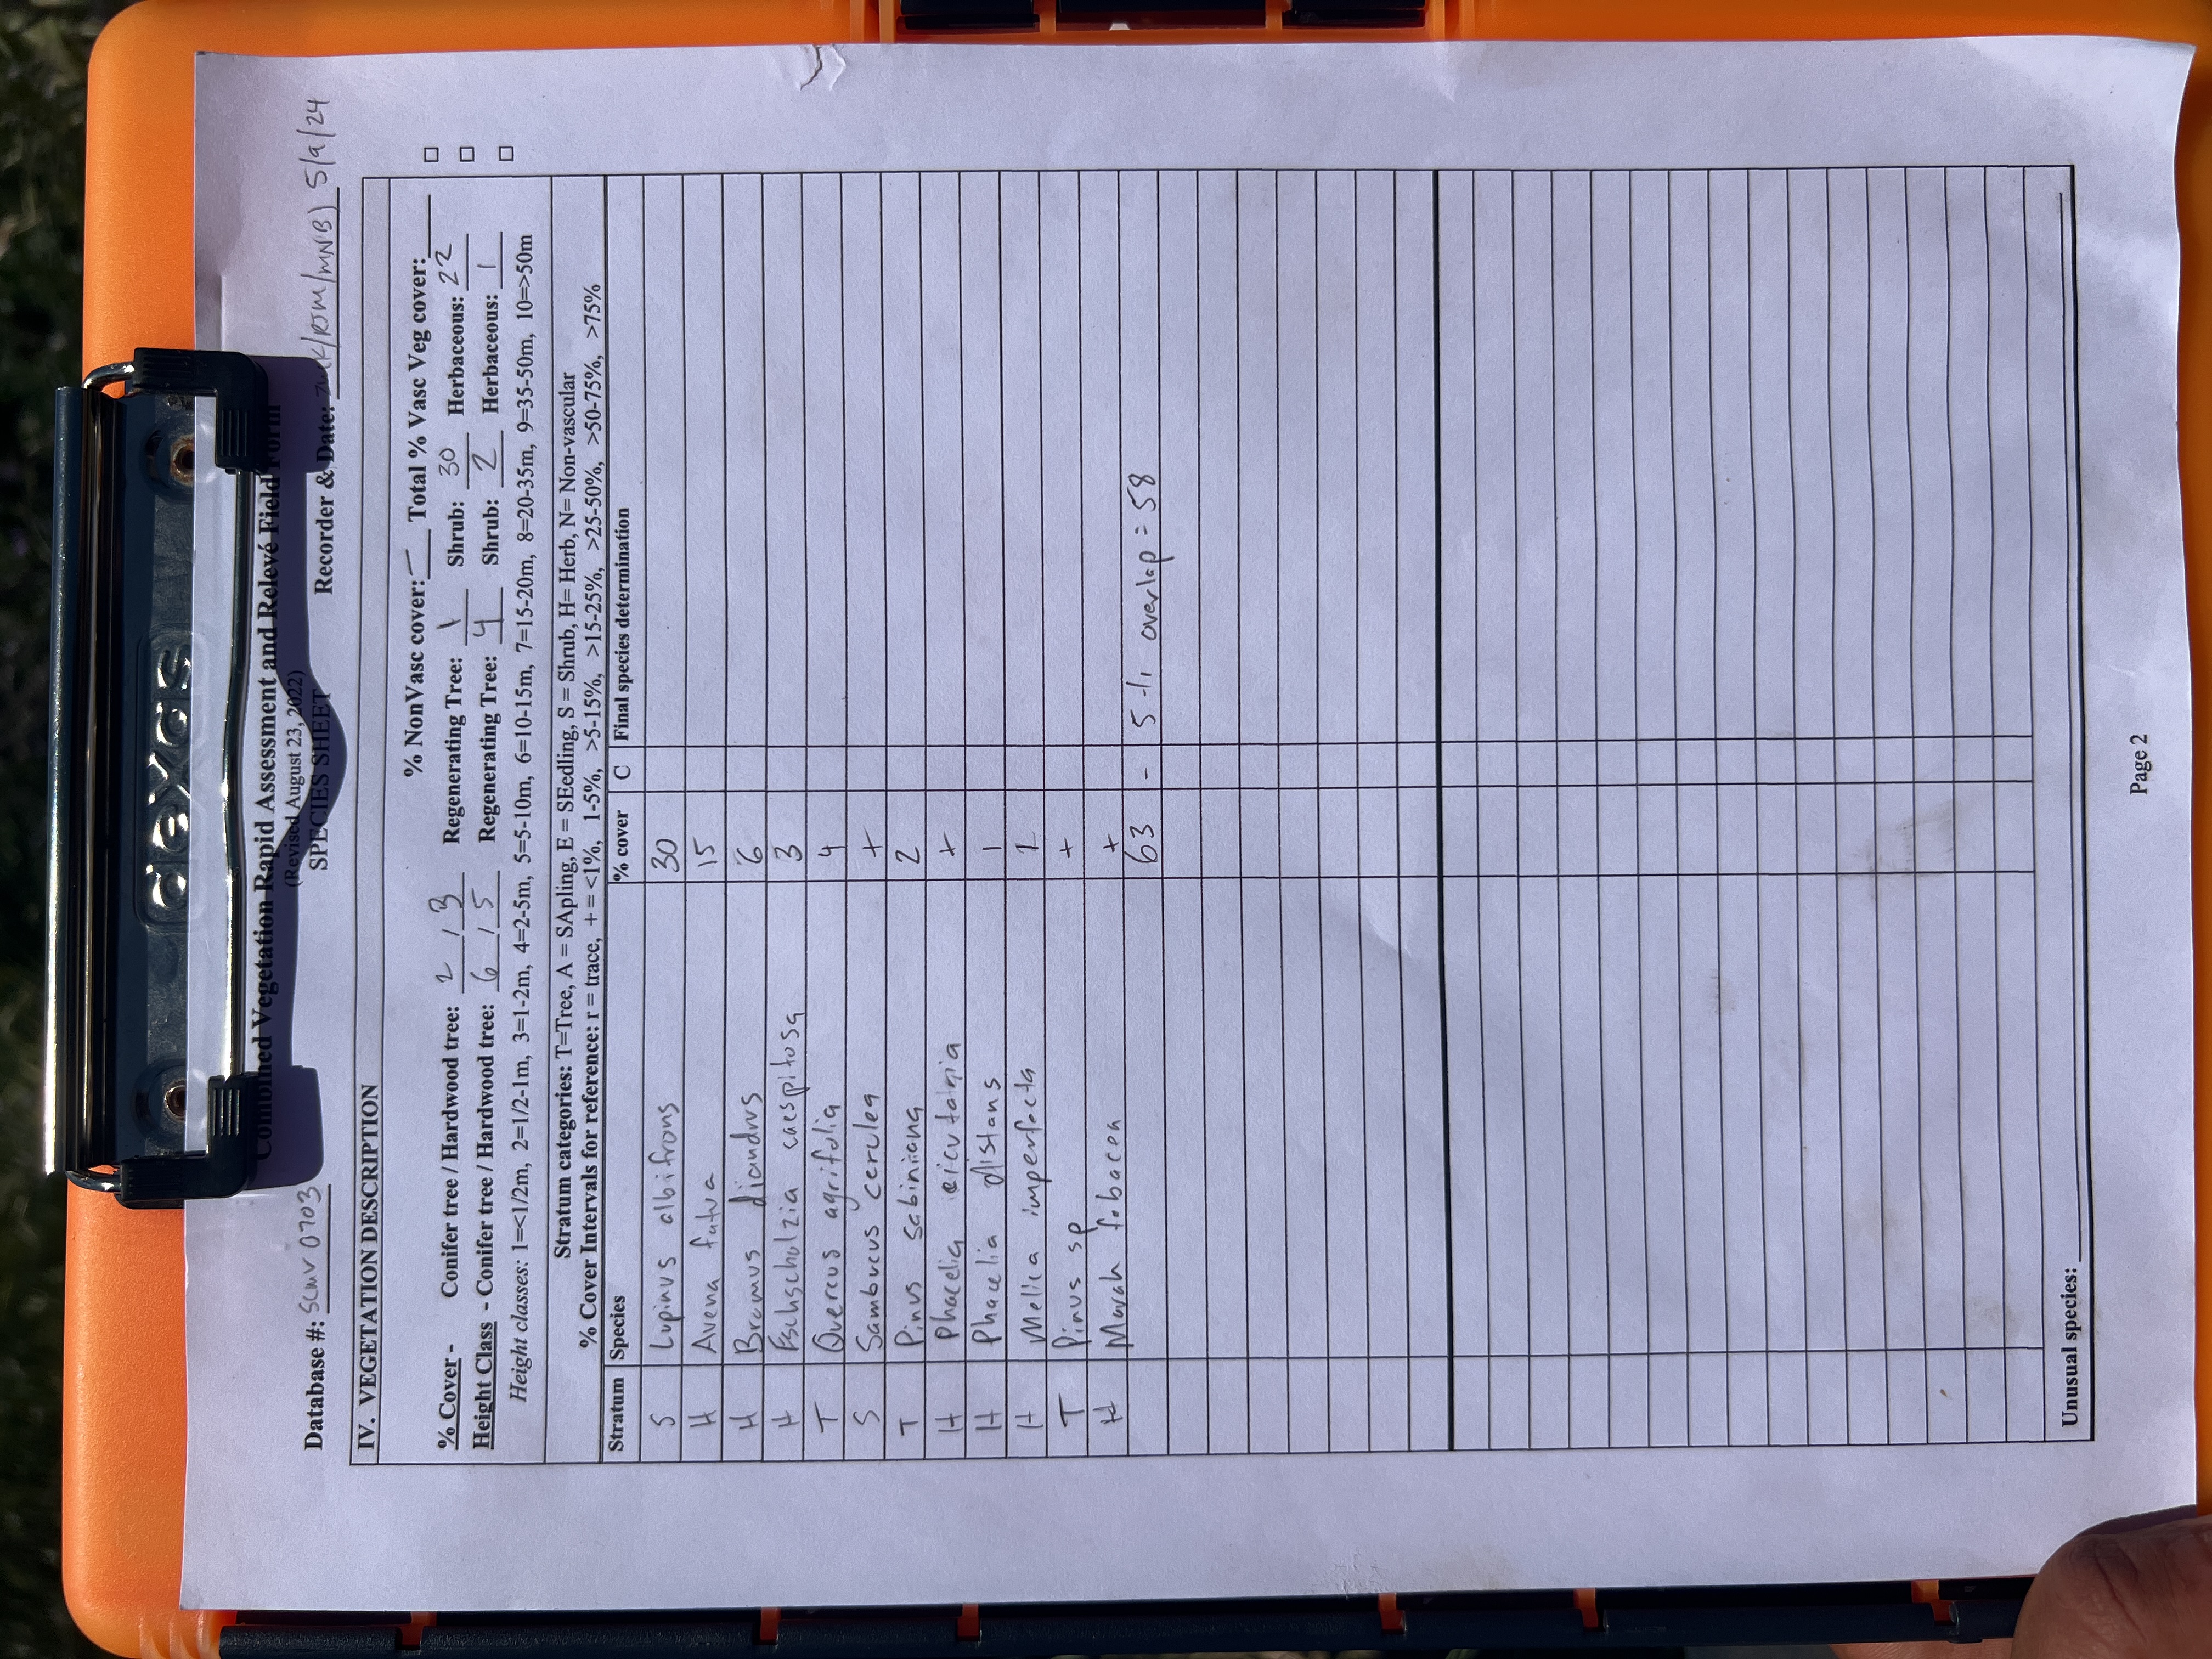 dexas
Combined Vegetation Rapid Assessment and Relevé Field Form
(Revised August 23, 2022)
SPECIES SHEET
Database #: SCMV 0703
Recorder & Date: /RJM/MNB) 5/9/24
IV. VEGETATION DESCRIPTION
% NonVasc cover: — Total % Vasc Veg cover:
% Cover - Conifer tree / Hardwood tree: 2 / 3 Regenerating Tree: 1 Shrub: 30 Herbaceous: 22
Height Class - Conifer tree / Hardwood tree: 6 / 5 Regenerating Tree: 4 Shrub: 2 Herbaceous: 1
Height classes: 1=<1/2m, 2=1/2-1m, 3=1-2m, 4=2-5m, 5=5-10m, 6=10-15m, 7=15-20m, 8=20-35m, 9=35-50m, 10=>50m
Stratum categories: T=Tree, A = SApling, E = SEedling, S = Shrub, H= Herb, N= Non-vascular
% Cover Intervals for reference: r = trace, + = <1%, 1-5%, >5-15%, >15-25%, >25-50%, >50-75%, >75%
Stratum Species % cover C Final species determination
S Lupinus albifrons 30
H Avena fatua 15
H Bromus diandrus 6
H Eschscholzia caespitosa 3
T Quercus agrifolia 4
S Sambucus cerulea +
T Pinus sabiniana 2
H Phacelia +
H Phacelia distans 1
H Mellica imperfecta 1
T Pinus sp +
H Marah fabacea +
63 - 5 % overlap = 58
Unusual species:
Page 2